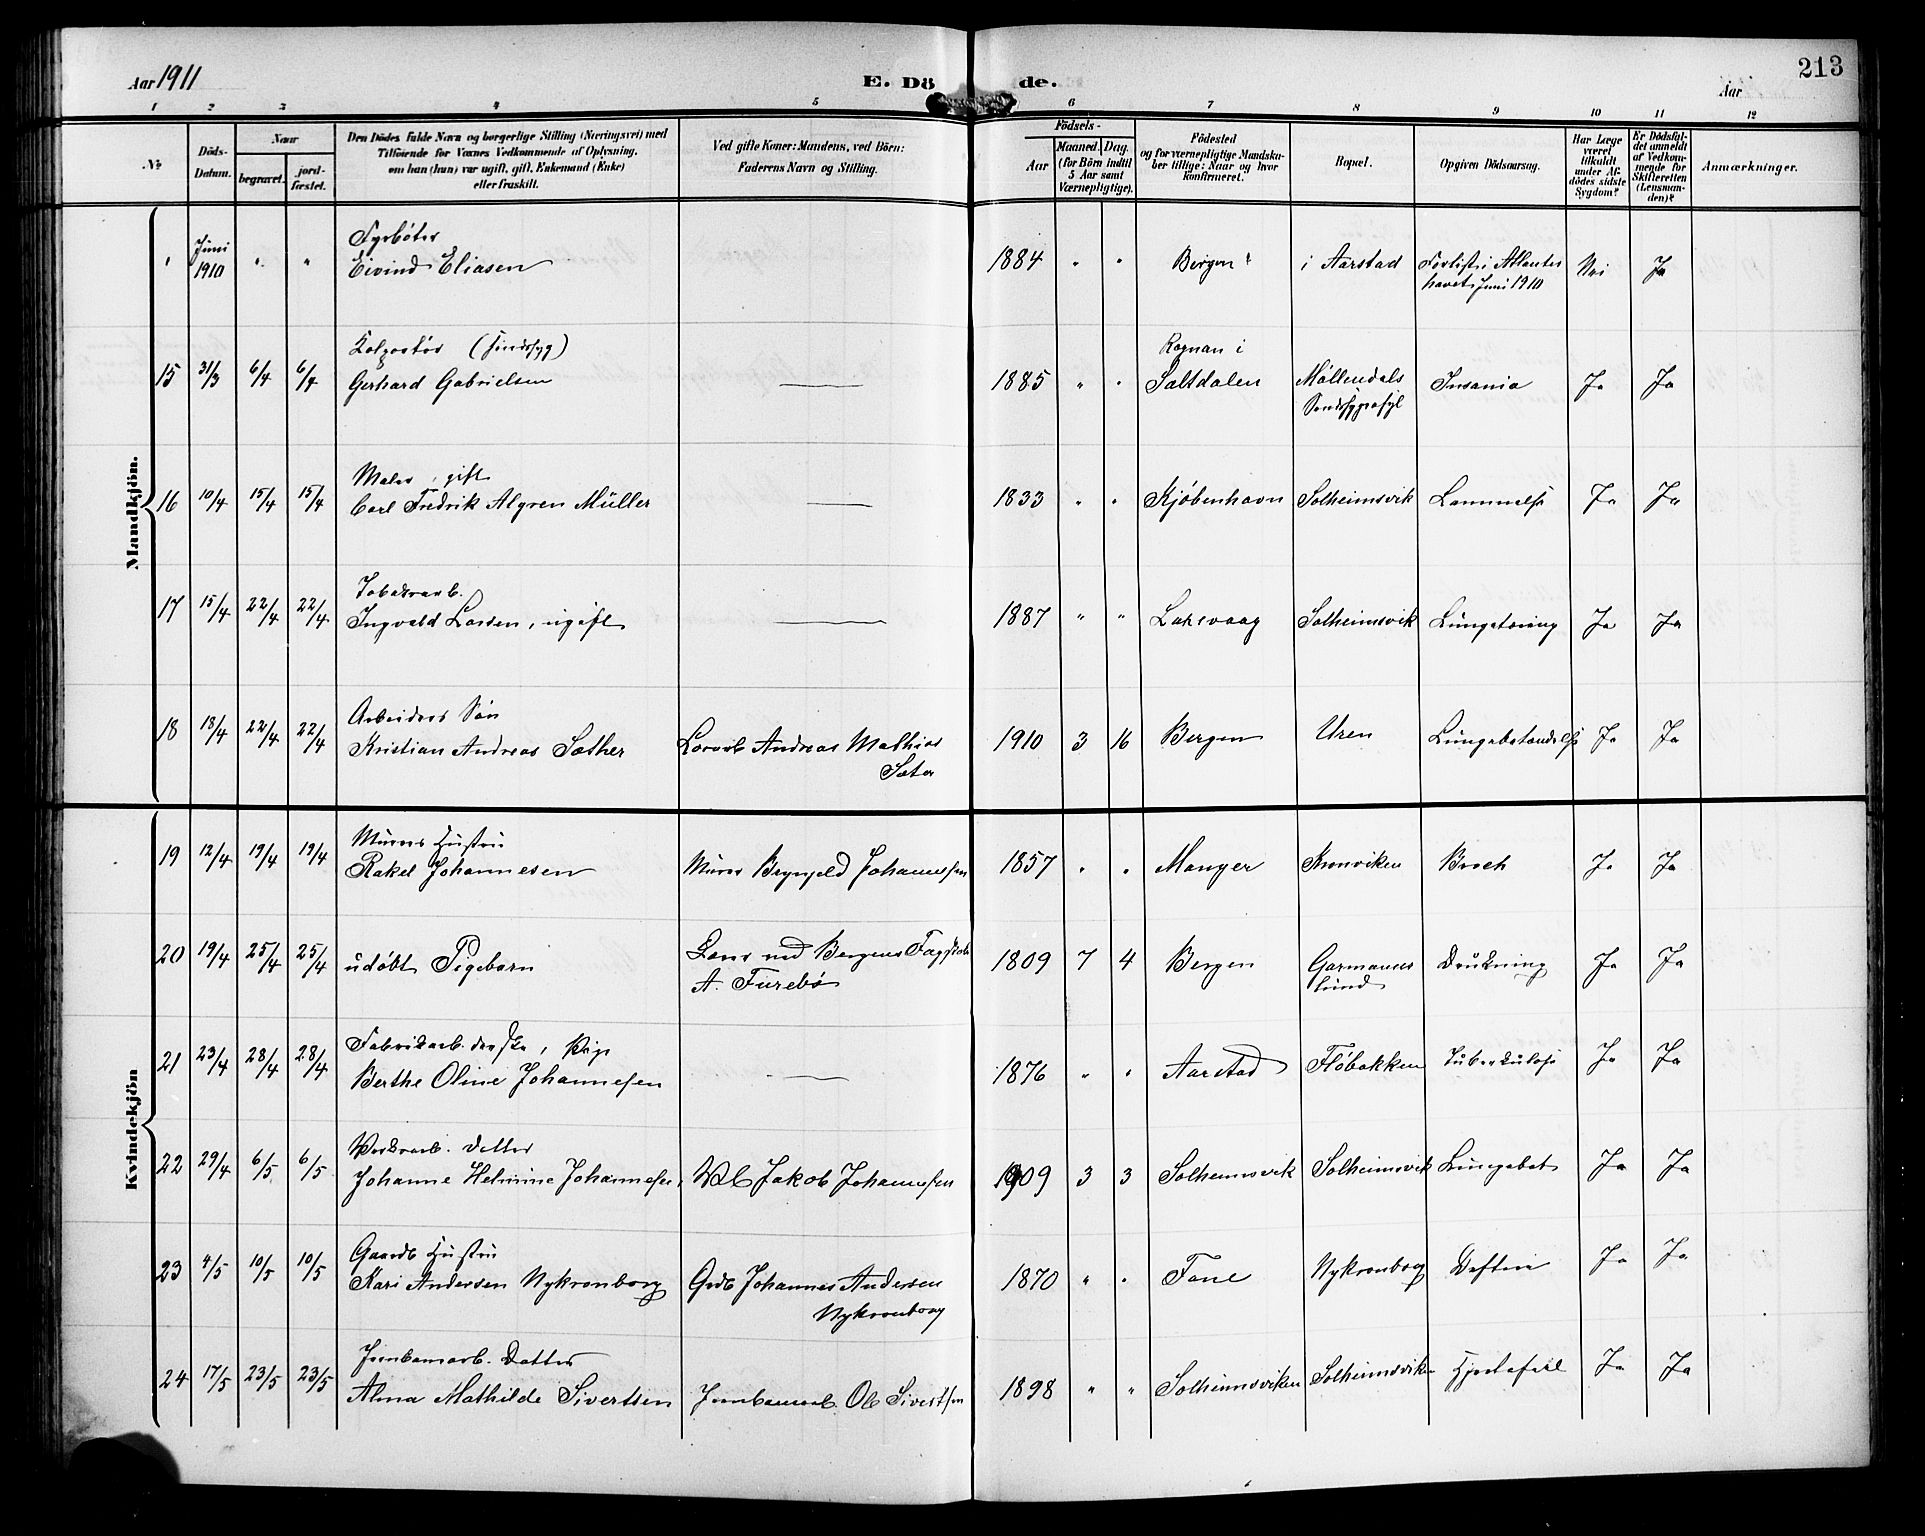 Aar 1911
E. Dö de.
Aar
213
1 2 3 4 5 6 7 8 9 10 11 12
No
Döds-Datum.
Naar
begravet.
jord-fæstet.
Den Dödes fulde Navn og borgerlige Stilling (Næringsvei) med
Tilföiende for Voxnes Vedkommende af Oplysning,
om han (hun) var ugift, gift, Enkemand (Enke)
eller fraskilt.
Ved gifte Koner: Mandens, ved Börn:
Faderens Navn og Stilling.
Födsels-
Aar
Maaned. Dag.
(for Börn indtil
5 Aar samt
Værnepligtige).
Födested
og for værnepligtige Mandska-
ber tillige: Naar og hvor
konfirmeret.
Bopæl.
Opgiven Dödsaarsag.
Har Læge
været
tilkaldt
under Af-
dödes sidste
Sygdom?
Er Dödsfal-
det anmeldt
af Vedkom-
mende for
Skifteretten
(Lensman-
den)?
Anmærkninger.
Mandkjön.
Juni
1910 " "
Fyrbøter
Eivind Eliasen
1884 " " Bergen i Aarstad
Forlist i Atlanter
havet i Juni 1910
Nei Ja
15 31/3 6/4 6/4
Kolportør (sindssyg)
Gerhard Gabrielsen
1885 " "
Rognan i
Saltdalen
Møllendals
Sindssygeasyl
Insania Ja Ja
16 10/4 15/4 15/4
Maler, gift
Carl Fredrik Algren Müller
1833 " " Kjøbenhavn Solheimsvik Lammelse Ja Ja
17 15/4 22/4 22/4
Tobaksarb.
Ingvald Larsen, ugift
1887 " " Laksevaag Solheimsvik Lungetæring Ja Ja
18 18/4 22/4 22/4
Arbeiders Søn
Kristian Andreas Sæther
Andreas Mathias
Sæter
1910 3 16 Bergen Uren Lungebetændelse Ja Ja
Kvindekjön
19 12/4 19/4 19/4
Murers Hustru
Rakel Johannesen
Murer Brynjeld Johannessen
1857 " " Manger Kronviken Broch Ja Ja
20 19/4 25/4 25/4
udøbt Pigebarn
Lærer ved Bergens Fagskole
A. Furebø
1809 7 4 Bergen
Garmanns
lund
Drukning Ja Ja
21 23/4 28/4 28/4
Fabrikarb.derske, Pige
Berthe Oline Johannesen
1876 " " Aarstad Fløbakken Tuberkulose Ja Ja
22 29/4 6/5 6/5
Værksarb. Datter
Johanne Helmine Johannesen,
Jakob Johannesen
1909 3 3 Solheimsvik Solheimsvik Lungebet Ja Ja
23 4/5 10/5 10/5
Gaardb Hustru
Kari Andersen Nykronborg
Grdb Johannes Andersen
Nykronborg
1870 " " Fane Nykronborg Ja Ja
24 17/5 23/5 23/5
Jernbanearb. Datter
Alma Mathilde Sivertsen
Jernbanearb. Ole Sivertsen
1898 " " Solheimsviken Solheimsviken Hjertefeil Ja Ja